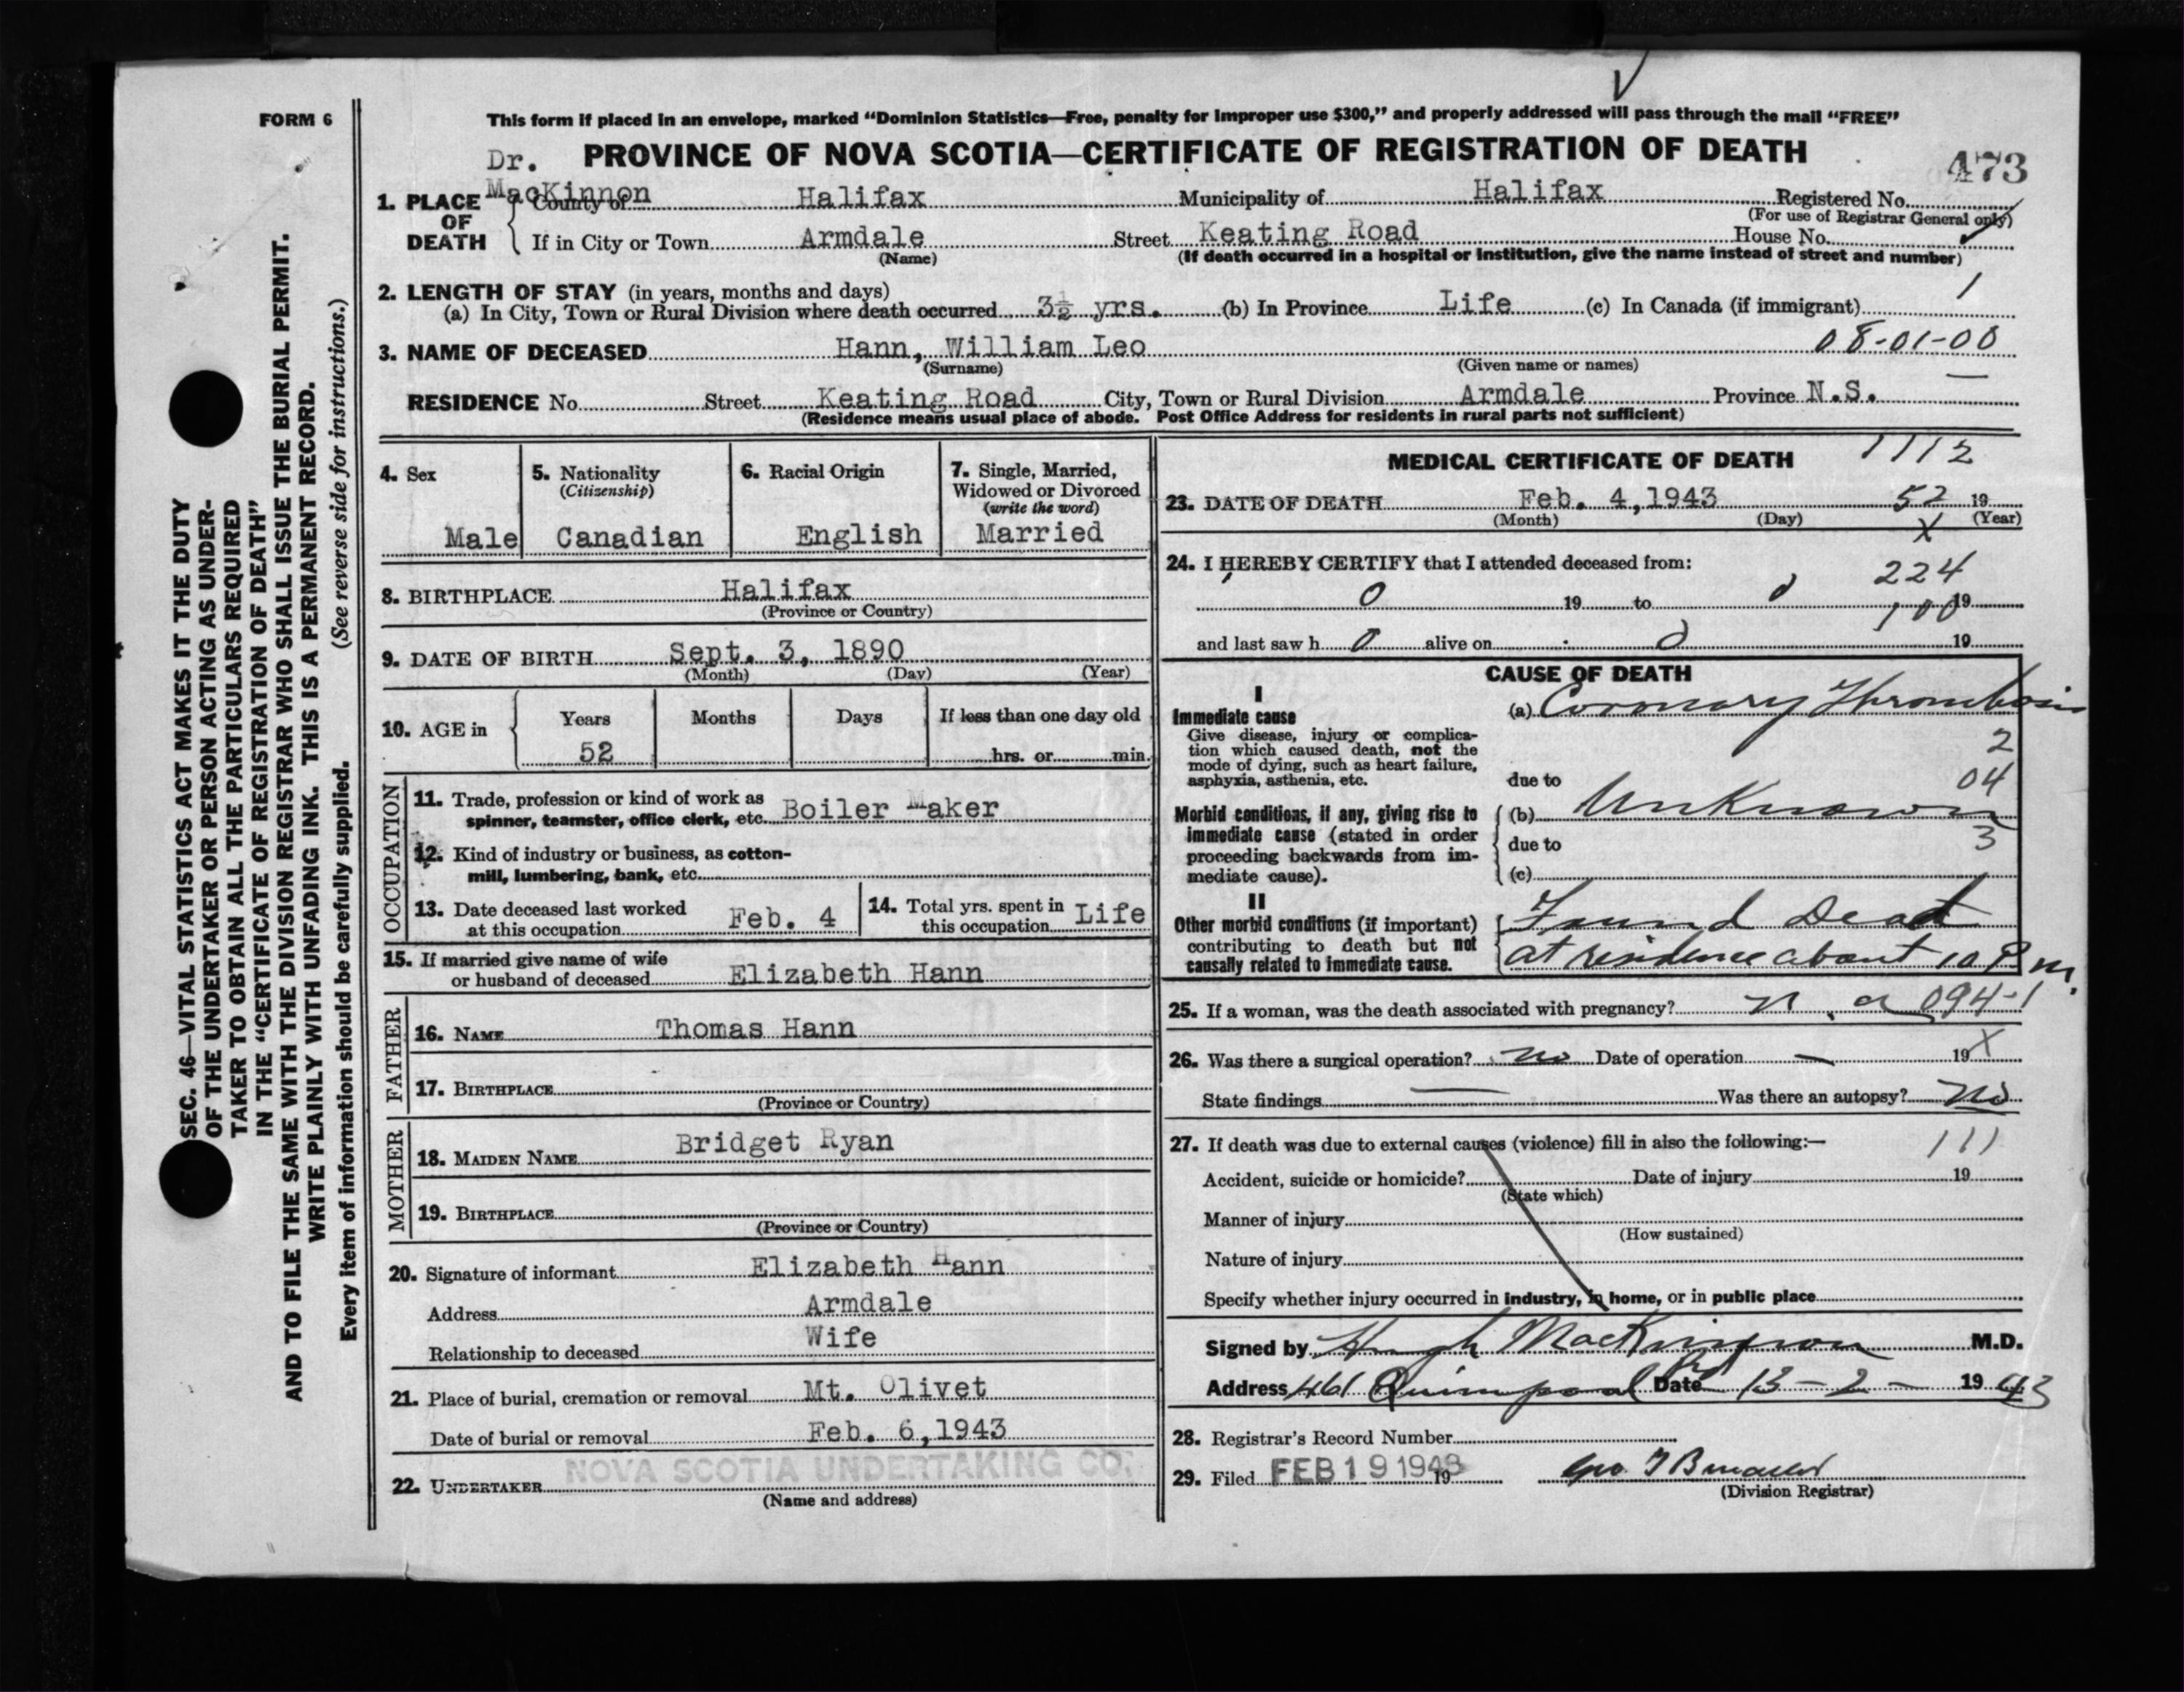 FORM 6
This form if placed in an envelope, marked “Dominion Statistics—Free, penalty for improper use $300,” and properly addressed will pass through the mail “FREE”
Dr. MacKinnon
PROVINCE OF NOVA SCOTIA—CERTIFICATE OF REGISTRATION OF DEATH
473
1. PLACE OF DEATH
County of Halifax Municipality of Halifax Registered No.
(For use of Registrar General only)
If in City or Town Armdale Street Keating Road House No.
(Name) (If death occurred in a hospital or institution, give the name instead of street and number)
2. LENGTH OF STAY (in years, months and days)
(a) In City, Town or Rural Division where death occurred 3½ yrs. (b) In Province Life (c) In Canada (if immigrant) 1
3. NAME OF DECEASED Hann, William Leo 08-01-00
(Surname) (Given name or names)
RESIDENCE No. Street Keating Road City, Town or Rural Division Armdale Province N.S.
(Residence means usual place of abode. Post Office Address for residents in rural parts not sufficient)
4. Sex
Male
5. Nationality
(Citizenship)
Canadian
6. Racial Origin
English
7. Single, Married,
Widowed or Divorced
(write the word)
Married
8. BIRTHPLACE Halifax
(Province or Country)
9. DATE OF BIRTH Sept. 3, 1890
(Month) (Day) (Year)
10. AGE in
Years Months Days If less than one day old
52 hrs. or min.
OCCUPATION
11. Trade, profession or kind of work as
spinner, teamster, office clerk, etc. Boiler Maker
12. Kind of industry or business, as cotton-
mill, lumbering, bank, etc.
13. Date deceased last worked
at this occupation Feb. 4
14. Total yrs. spent in
this occupation Life
15. If married give name of wife
or husband of deceased Elizabeth Hann
FATHER
16. NAME Thomas Hann
17. BIRTHPLACE
(Province or Country)
MOTHER
18. MAIDEN NAME Bridget Ryan
19. BIRTHPLACE
(Province or Country)
20. Signature of informant Elizabeth Hann
Address Armdale
Relationship to deceased Wife
21. Place of burial, cremation or removal Mt. Olivet
Date of burial or removal Feb. 6, 1943
22. UNDERTAKER NOVA SCOTIA UNDERTAKING CO.
(Name and address)
MEDICAL CERTIFICATE OF DEATH 1112
23. DATE OF DEATH Feb. 4, 1943 52 19
(Month) (Day) X (Year)
24. I HEREBY CERTIFY that I attended deceased from:
224
0 19 to 0 19
100
and last saw h 0 alive on 0 19
CAUSE OF DEATH
I
Immediate cause
Give disease, injury or complica-
tion which caused death, not the
mode of dying, such as heart failure,
asphyxia, asthenia, etc.
(a) Coronary Thrombosis
2
due to 04
Morbid conditions, if any, giving rise to
immediate cause (stated in order
proceeding backwards from im-
mediate cause).
(b) Unknown
due to 3
(c)
II
Other morbid conditions (if important)
contributing to death but not
causally related to immediate cause.
Found Dead
at residence about 10 P.m.
25. If a woman, was the death associated with pregnancy? n. a 094-1
26. Was there a surgical operation? no Date of operation — 19 X
State findings — Was there an autopsy? no
27. If death was due to external causes (violence) fill in also the following:—
111
Accident, suicide or homicide? Date of injury 19
(State which)
Manner of injury
(How sustained)
Nature of injury
Specify whether injury occurred in industry, in home, or in public place
Signed by Hugh MacKinnon M.D.
Address 461 Quinpool Rd Date 13-2- 1943
28. Registrar's Record Number
29. Filed FEB 19 1943 19
(Division Registrar)
SEC. 46—VITAL STATISTICS ACT MAKES IT THE DUTY
OF THE UNDERTAKER OR PERSON ACTING AS UNDER-
TAKER TO OBTAIN ALL THE PARTICULARS REQUIRED
IN THE “CERTIFICATE OF REGISTRATION OF DEATH”
AND TO FILE THE SAME WITH THE DIVISION REGISTRAR WHO SHALL ISSUE THE BURIAL PERMIT.
WRITE PLAINLY WITH UNFADING INK. THIS IS A PERMANENT RECORD.
Every item of information should be carefully supplied. (See reverse side for instructions.)